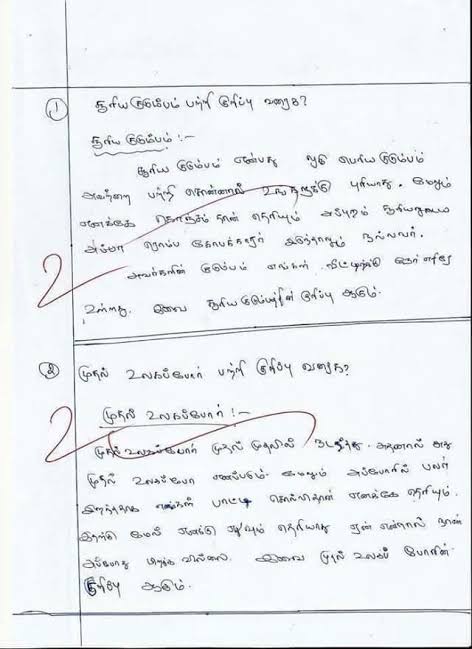 1) சூரிய குடும்பம் பற்றி குறிப்பு வரைக?
சூரிய குடும்பம் :-
சூரிய குடும்பம் என்பது ஒரு பெரிய குடும்பம்
அவற்றை பற்றி சொன்னால் உங்களுக்கு புரியாது. மேலும்
எனக்கே கொஞ்சம் தான் தெரியும் அப்புறம் சூரியனுடைய
அம்மா ரொம்ப கோபக்காரர் இருந்தாலும் நல்லவர்.
2
அவர்களின் குடும்பம் எங்கள் வீட்டிற்கு நேர் எதிரே
உள்ளது. இவை சூரிய குடும்பத்தின் குறிப்பு ஆகும்.
2) முதல் உலகப்போர் பற்றி குறிப்பு வரைக?
முதல் உலகப்போர் :-
2
முதல் உலகப்போர் முதன் முதலில் நடந்தது. அதனால் அது
முதல் உலகப்போர் எனப்படும். மேலும் அப்போரில் பலர்
இறந்ததாக எங்கள் பாட்டி சொல்லிதான் எனக்கே தெரியும்.
இதற்கு மேல் எனக்கு எதுவும் தெரியாது ஏன் என்றால் நான்
அப்போது பிறக்க வில்லை. இவை முதல் உலகப் போரின்
குறிப்பு ஆகும்.